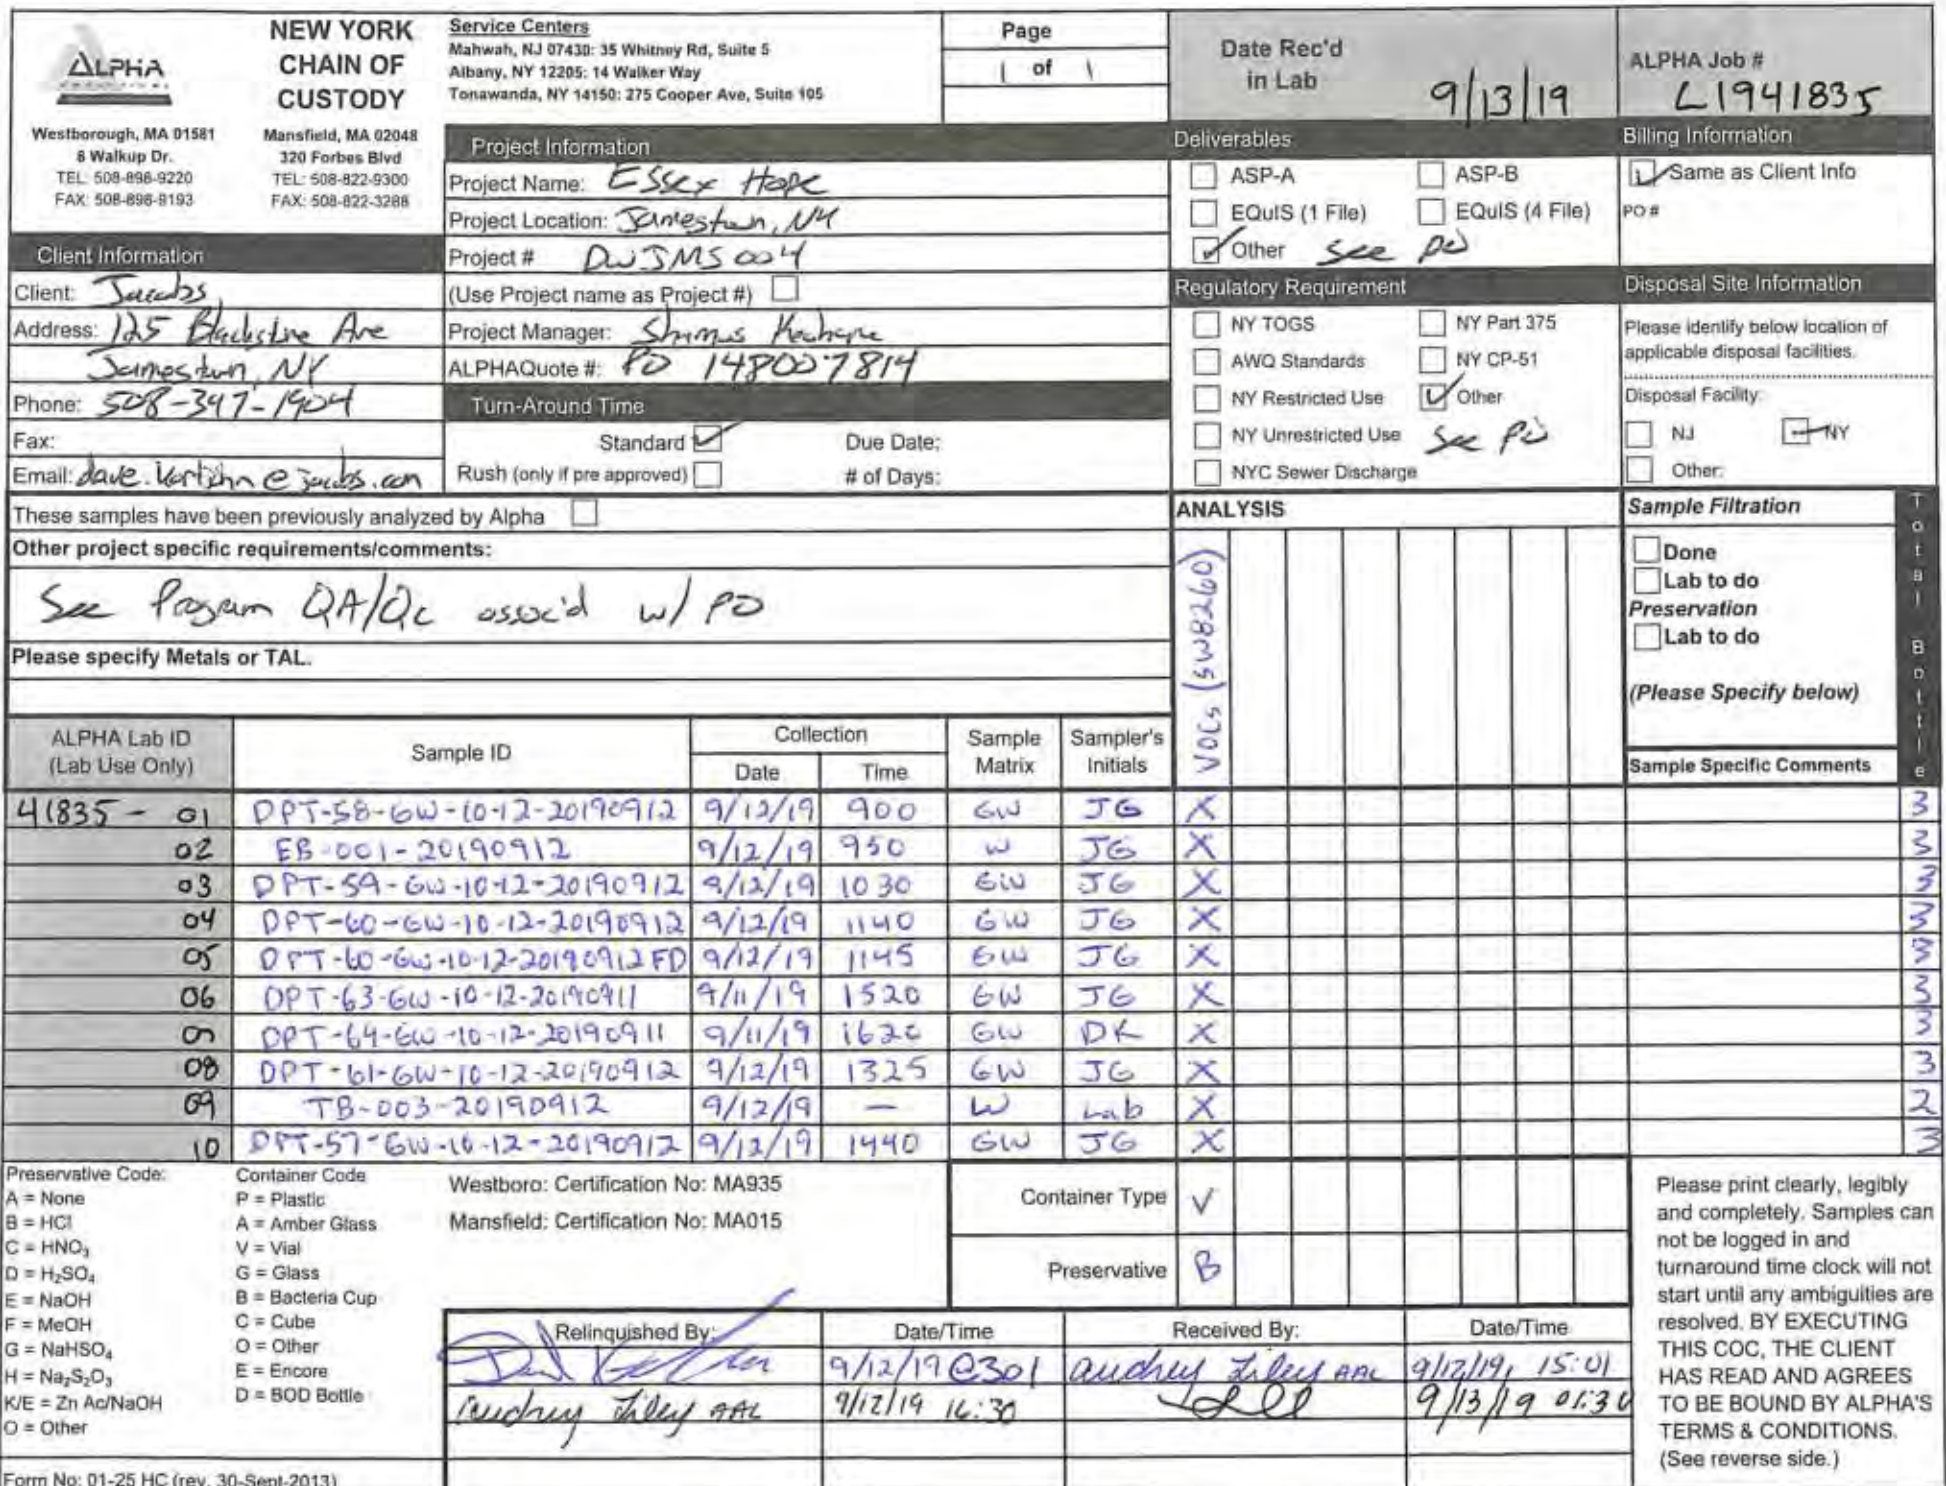 ALPHA
NEW YORK
CHAIN OF
CUSTODY
Westborough, MA 01581
8 Walkup Dr.
TEL: 508-898-9220
FAX: 508-898-9193
Mansfield, MA 02048
320 Forbes Blvd
TEL: 508-822-9300
FAX: 508-822-3288
Service Centers
Mahwah, NJ 07430: 35 Whitney Rd, Suite 5
Albany, NY 12205: 14 Walker Way
Tonawanda, NY 14150: 275 Cooper Ave, Suite 105
Page
1 of 1
Date Rec'd
in Lab
9/13/19
ALPHA Job #
L1941835
Project Information
Project Name: Essex Hope
Project Location: Jamestown, NY
Project # DWJMS004
(Use Project name as Project #)
Project Manager:
ALPHAQuote #: PO 1480027814
Turn-Around Time
Standard ✓ Due Date:
Rush (only if pre approved) # of Days:
Client Information
Client: Jacobs
Address: 125 Blackstone Ave
Jamestown, NY
Phone: 508-347-1904
Fax:
Email: @jacobs.com
Deliverables
ASP-A ASP-B
EQuIS (1 File) EQuIS (4 File)
✓ Other See PO
Regulatory Requirement
NY TOGS NY Part 375
AWQ Standards NY CP-51
NY Restricted Use ✓ Other
NY Unrestricted Use See PO
NYC Sewer Discharge
Billing Information
✓ Same as Client Info
PO #
Disposal Site Information
Please identify below location of
applicable disposal facilities.
Disposal Facility:
NJ NY
Other:
These samples have been previously analyzed by Alpha
Other project specific requirements/comments:
See Program QA/QC assoc'd w/ PO
Please specify Metals or TAL.
ANALYSIS
VOCs (SW8260)
Sample Filtration
Done
Lab to do
Preservation
Lab to do
(Please Specify below)
Total Bottle
ALPHA Lab ID
(Lab Use Only)
Sample ID
Collection
Date Time
Sample
Matrix
Sampler's
Initials
Sample Specific Comments
41835 - 01 DPT-58-GW-10-12-20190912 9/12/19 900 GW JG X 3
02 EB-001-20190912 9/12/19 950 W JG X 3
03 DPT-59-GW-10-12-20190912 9/12/19 1030 GW JG X 3
04 DPT-60-GW-10-12-20190912 9/12/19 1140 GW JG X 3
05 DPT-60-GW-10-12-20190912FD 9/12/19 1145 GW JG X 3
06 DPT-63-GW-10-12-20190911 9/11/19 1520 GW JG X 3
07 DPT-64-GW-10-12-20190911 9/11/19 1620 GW DK X 3
08 DPT-61-GW-10-12-20190912 9/12/19 1325 GW JG X 3
09 TB-003-20190912 9/12/19 — W Lab X 2
10 DPT-57-GW-10-12-20190912 9/12/19 1440 GW JG X 3
Preservative Code:
A = None
B = HCl
C = HNO₃
D = H₂SO₄
E = NaOH
F = MeOH
G = NaHSO₄
H = Na₂S₂O₃
K/E = Zn Ac/NaOH
O = Other
Container Code
P = Plastic
A = Amber Glass
V = Vial
G = Glass
B = Bacteria Cup
C = Cube
O = Other
E = Encore
D = BOD Bottle
Westboro: Certification No: MA935
Mansfield: Certification No: MA015
Container Type V
Preservative B
Relinquished By: Date/Time Received By: Date/Time
9/12/19 @ 301 Audrey AAL 9/12/19, 15:01
Audrey AAL 9/12/19 16:30 9/13/19 01:30
Please print clearly, legibly
and completely. Samples can
not be logged in and
turnaround time clock will not
start until any ambiguities are
resolved. BY EXECUTING
THIS COC, THE CLIENT
HAS READ AND AGREES
TO BE BOUND BY ALPHA'S
TERMS & CONDITIONS.
(See reverse side.)
Form No: 01-25 HC (rev. 30-Sept-2013)